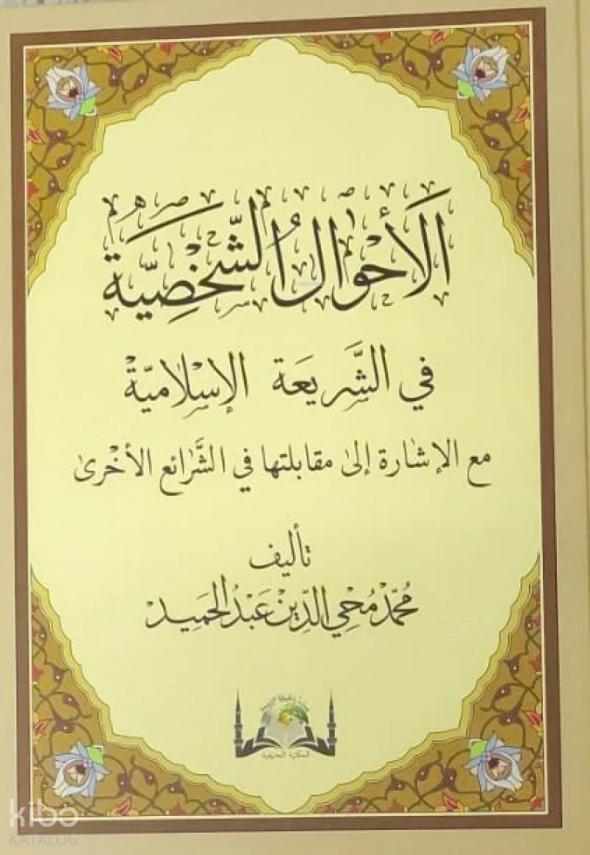 الأَحْوَالُ الشَّخْصِيَّة
في الشَّرِيعَة الإِسْلاميَّة
مع الإشارة إلى مقابلتها في الشَّرائع الأخرى
تأليف
مُحَمَّد مُحْيِي الدِّين عَبْدُ الحَمِيد
المكتبة الحنيفية
kibo
KATALOG